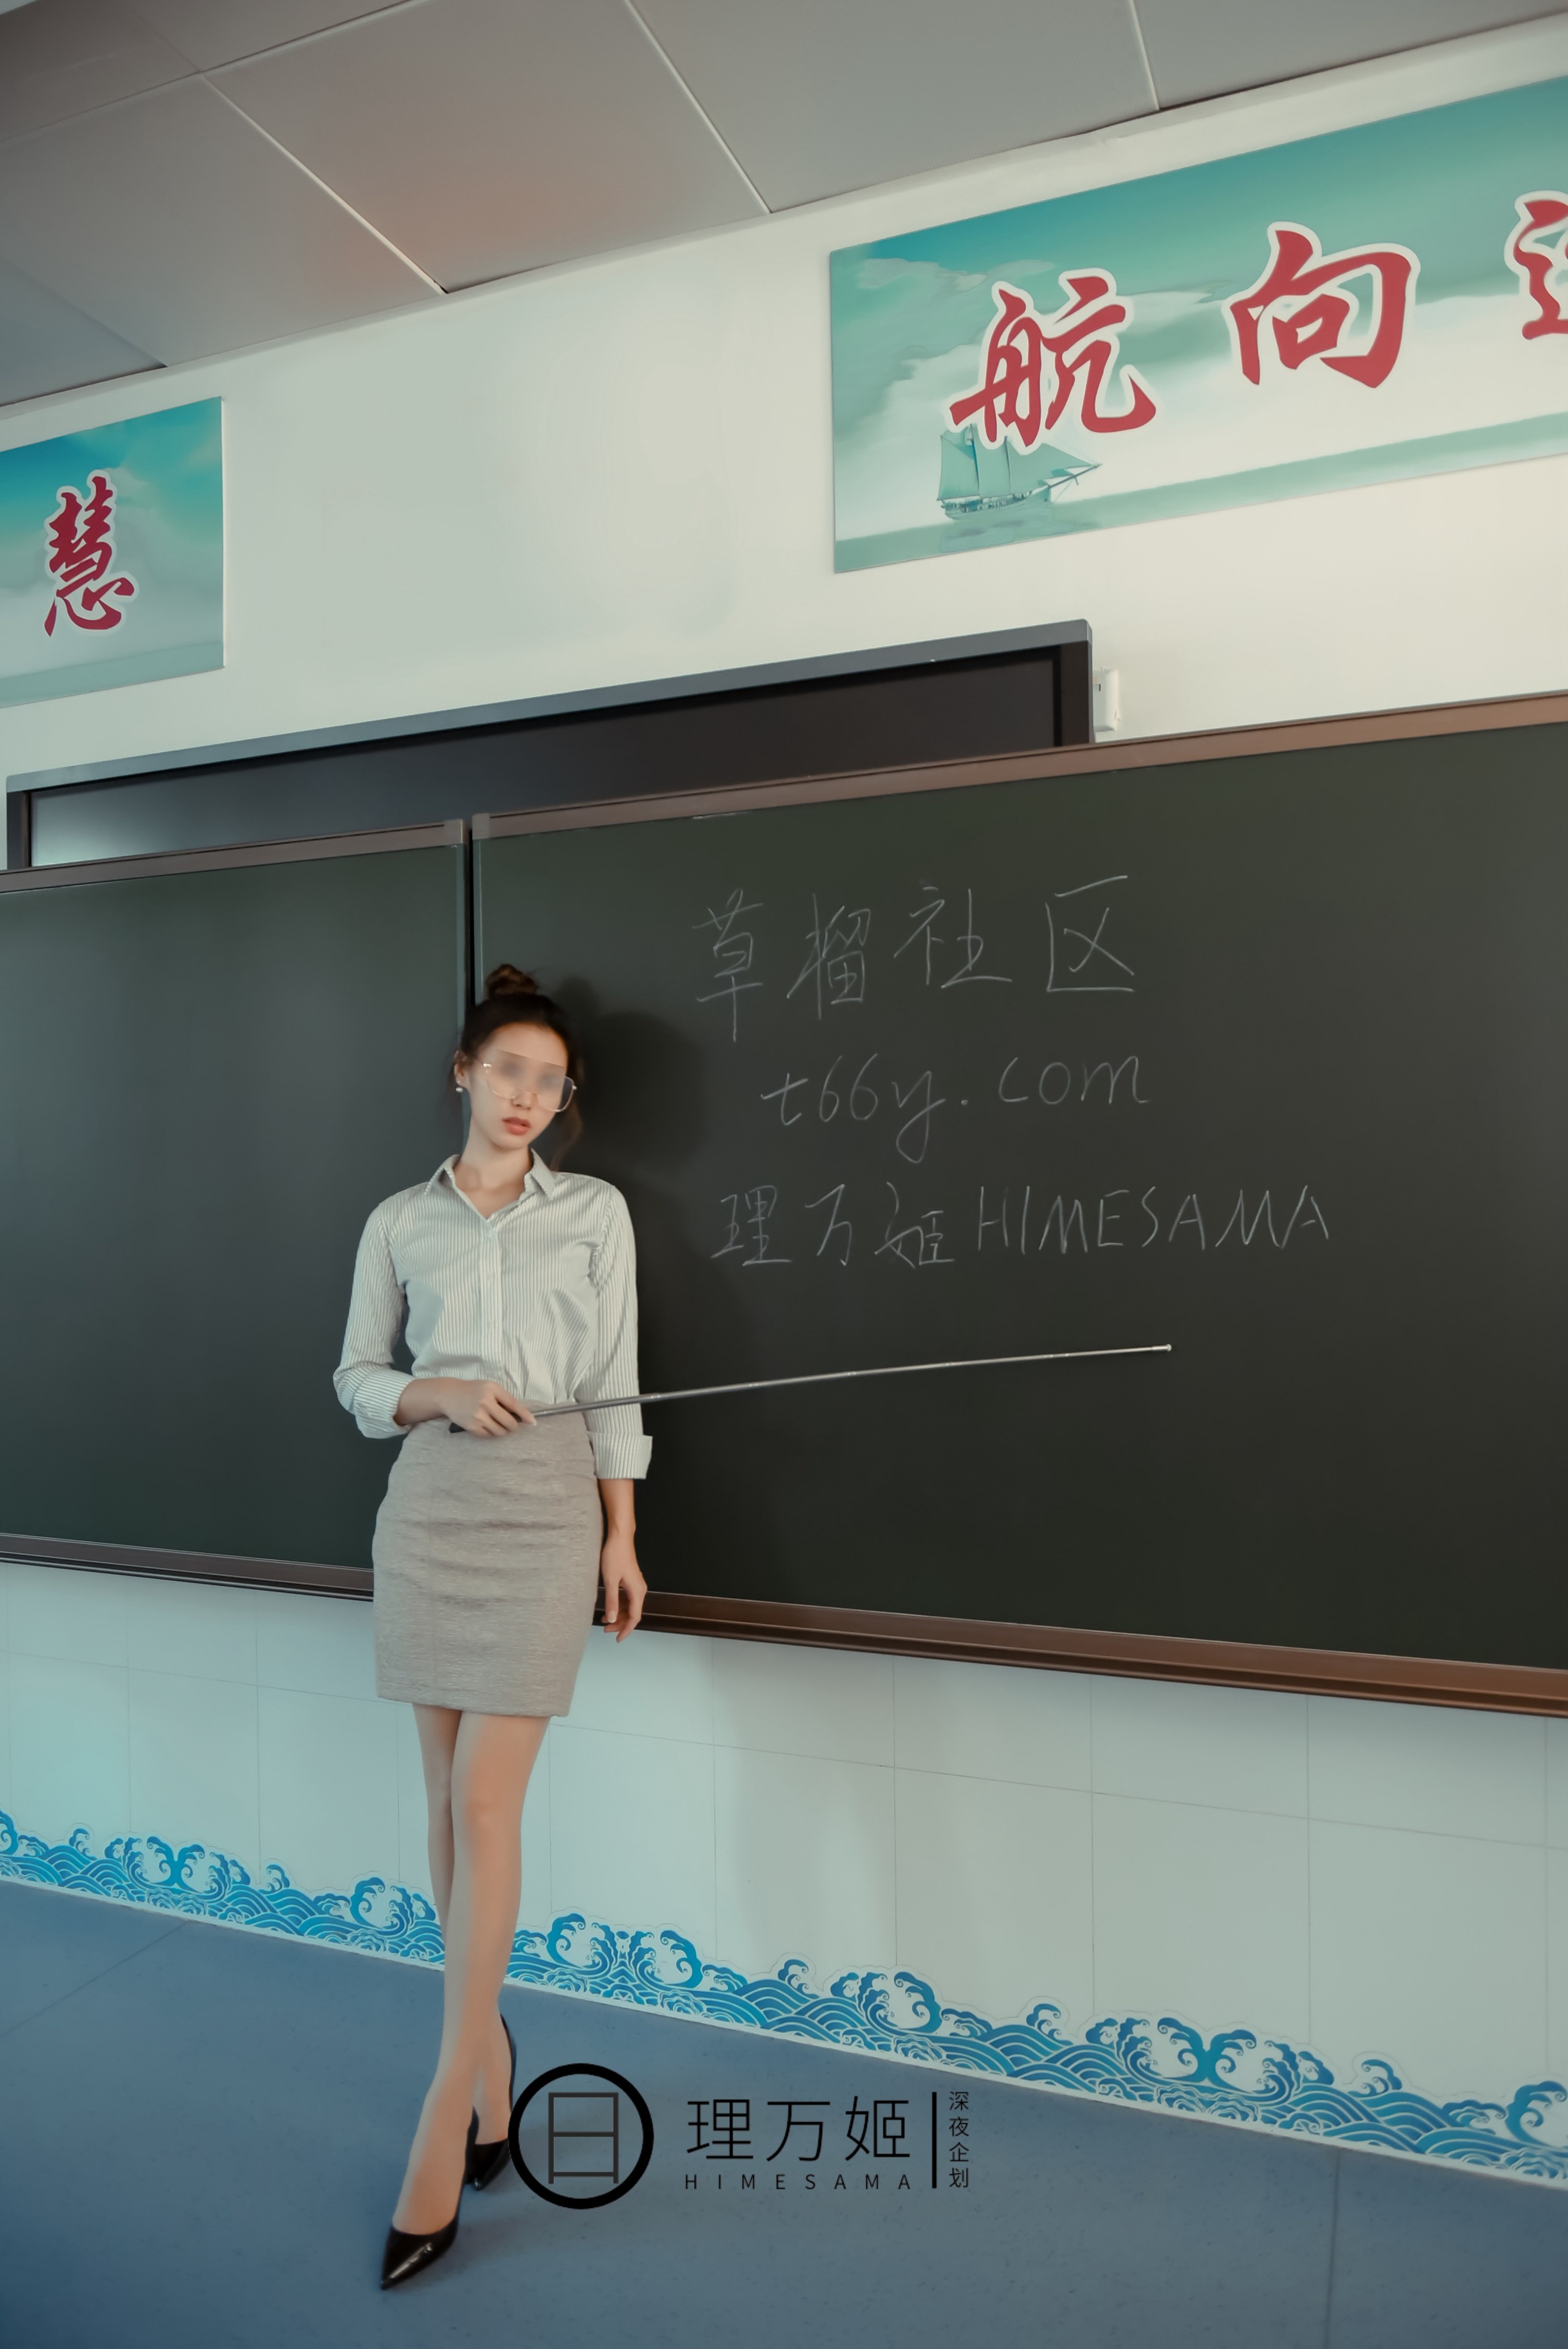 慧
航向
草榴社区
t66y.com
理万姬 HIMESAMA
理万姬
HIMESAMA
深夜企划